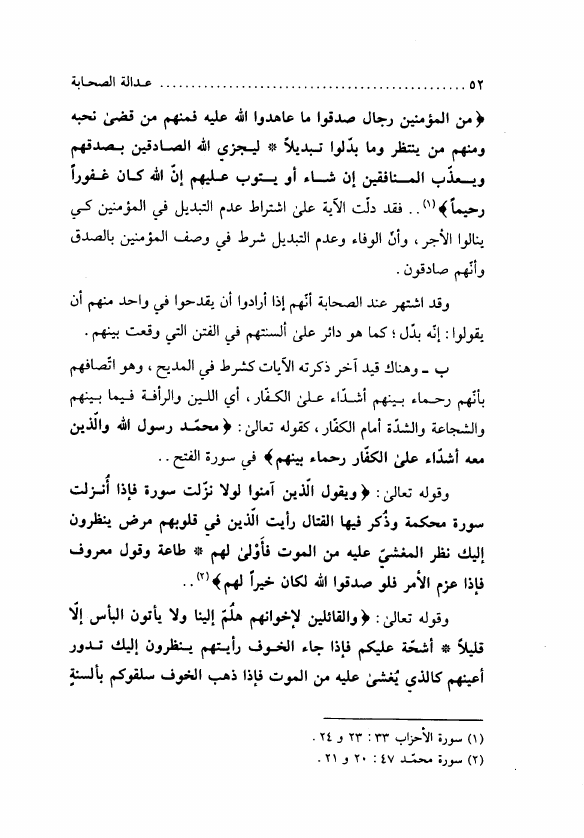 ٥٢ ................................................ عـدالة الصحـابة
﴿من المؤمنين رجال صدقوا ما عاهدوا الله عليه فمنهم من قضىٰ نحبه
ومنهم من ينتظر وما بدّلوا تـبديلاً * ليـجزي الله الصـادقين بـصدقهم
ويـعذّب المـنافقين إن شـاء أو يـتوب عـليهم إنّ الله كـان غـفوراً
رحيماً﴾(١).. فقد دلّت الآية علىٰ اشتراط عدم التبديل في المؤمنين كـي
ينالوا الأجر، وأنّ الوفاء وعدم التبديل شرط في وصف المؤمنين بالصدق
وأنّهم صادقون.
وقد اشتهر عند الصحابة أنّهم إذا أرادوا أن يقدحوا في واحد منهم أن
يقولوا: إنّه بدّل؛ كما هو دائر علىٰ ألسنتهم في الفتن التي وقعت بينهم.
ب ـ وهناك قيد آخر ذكرته الآيات كشرط في المديح، وهو اتّصافهم
بأنّهم رحـماء بـينهم أشـدّاء عـلىٰ الكـفّار، أي اللين والرأفـة فيـما بـينهم
والشجاعة والشدّة أمام الكفّار، كقوله تعالىٰ: ﴿محمّـد رسول الله والّذين
معه أشدّاء علىٰ الكفّار رحماء بينهم﴾ في سورة الفتح..
وقوله تعالىٰ: ﴿ويقول الّذين آمنوا لولا نزّلت سورة فإذا أُنـزلت
سورة محكمة وذُكر فيها القتال رأيت الّذين في قلوبهم مرض ينظرون
إليك نظر المغشيّ عليه من الموت فأوْلىٰ لهم * طاعة وقول معروف
فإذا عزم الأمر فلو صدقوا الله لكان خيراً لهم﴾(٢)..
وقوله تعالىٰ: ﴿والقائلين لإخوانهم هلُمّ إلينا ولا يأتون البأس إلّا
قليلاً * أشحّة عليكم فإذا جاء الخـوف رأيـتهم يـنظرون إليك تـدور
أعينهم كالذي يُغشىٰ عليه من الموت فإذا ذهب الخوف سلقوكم بألسنةٍ
(١) سورة الأحزاب ٣٣: ٢٣ و ٢٤.
(٢) سورة محمّد ٤٧: ٢٠ و ٢١.